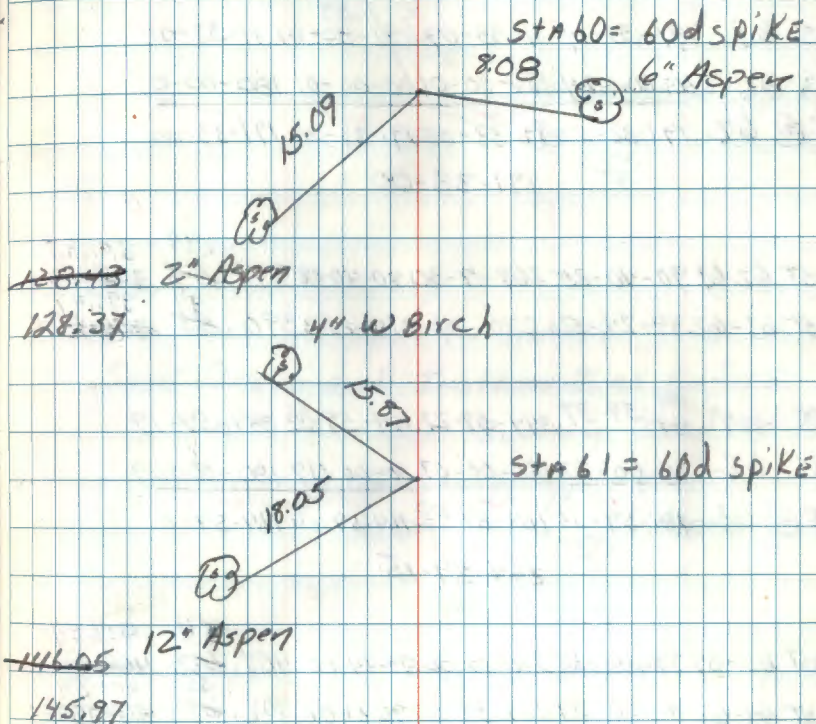 StA 60 = 60d spiKE
8.08
6" Aspen
15.09
2" Aspen
128.43
128.37
4" W Birch
15.87
StA 61 = 60d spiKE
18.05
12" Aspen
146.05
145.97